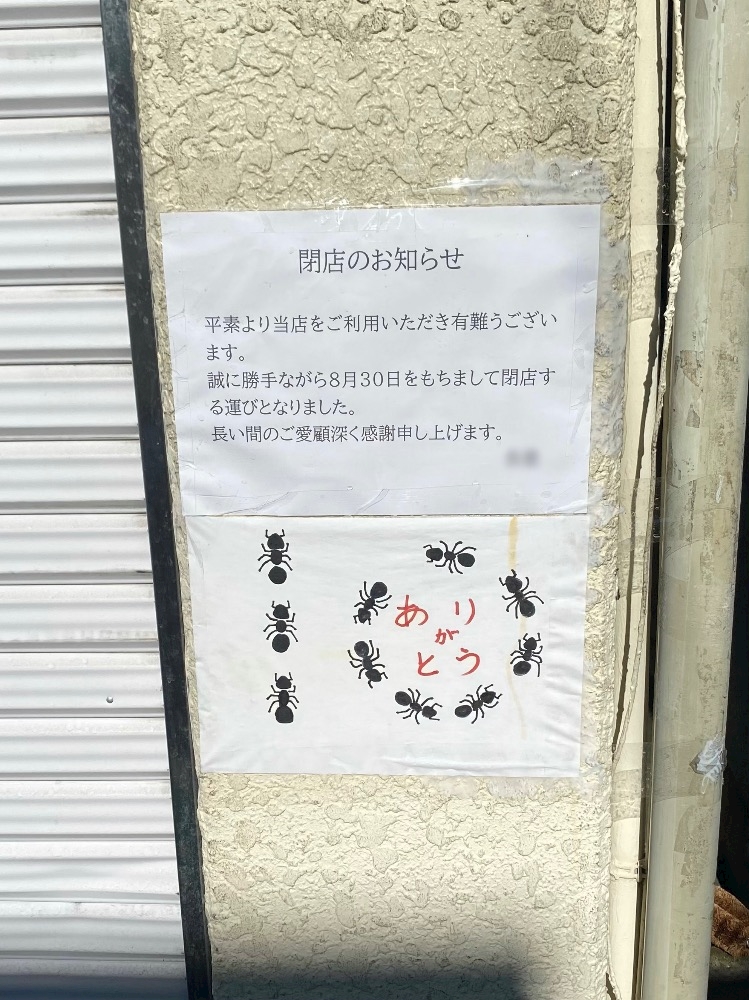 閉店のお知らせ
平素より当店をご利用いただき有難うござい
ます。
誠に勝手ながら8月30日をもちまして閉店す
る運びとなりました。
長い間のご愛顧深く感謝申し上げます。
あり
が
とう